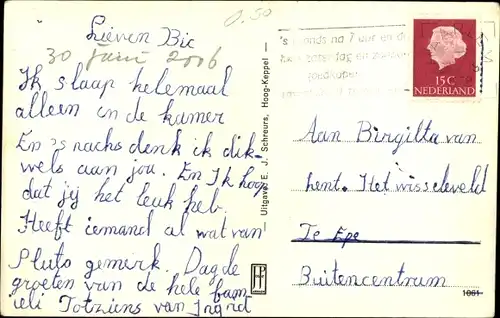 Lieven Bic
0.50
30 juni 2006
Ik slaap helemaal
alleen in de kamer
En 's nachs denk ik dik-
wels aan jou. En Ik hoop
dat jij het leuk heb
Heeft iemand al wat van
Pluto gemerk. Dag de
groeten van de hele fam
ieli Totziens van Ingrid
Uitgave E. J. Schreurs, Hoog-Keppel
's avonds na 7 uur en de
hele zaterdag en zondag
goedkoper
15C
NEDERLAND
Aan Birgitta van
hent. Het wisseleveld
Te Epe
Buitencentrum
1061